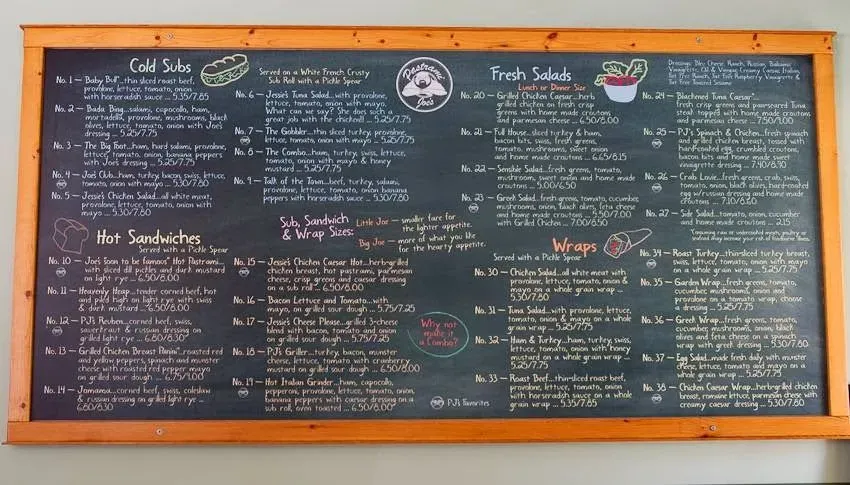 Cold Subs
No. 1 – "Baby Bull"...thin sliced roast beef,
provolone, lettuce, tomato, onion
with horseradish sauce ... 5.35/7.85
No. 2 – Bada Bing...salami, capocollo, ham,
mortadella, provolone, mushrooms, black
olives, lettuce, tomato, onion with Joe's
dressing ... 5.25/7.75
No. 3 – The Big Toot...ham, hard salami, provolone,
lettuce, tomato, onion, banana peppers
with Joe's dressing ... 5.25/7.75
No. 4 – Joe's Club...ham, turkey, bacon, swiss, lettuce,
tomato, onion with mayo ... 5.30/7.80
No. 5 – Jessie's Chicken Salad...all white meat,
provolone, lettuce, tomato, onion with
mayo ... 5.30/7.80
Served on a White French Crusty
Sub Roll with a Pickle Spear
No. 6 – Jessie's Tuna Salad...with provolone,
lettuce, tomato, onion with mayo.
What can we say? She does such a
great job with the chicken!! ... 5.25/7.75
No. 7 – The Gobbler...thin sliced turkey, provolone,
lettuce, tomato, onion with mayo ... 5.25/7.75
No. 8 – The Combo...ham, turkey, swiss, lettuce,
tomato, onion with mayo & honey
mustard ... 5.25/7.75
No. 9 – Talk of the Town...beef, turkey, salami,
provolone, lettuce, tomato, onion banana
peppers with horseradish sauce ... 5.30/7.80
Pastrami
Joe's
Sub, Sandwich
& Wrap Sizes:
Little Joe – smaller fare for
the lighter appetite.
Big Joe – more of what you like
for the hearty appetite.
Hot Sandwiches
Served with a Pickle Spear
No. 10 – Joe's "soon to be famous" Hot Pastrami...
with sliced dill pickles and dark mustard
on light rye ... 6.50/8.00
No. 11 – Heavenly Heap...tender corned beef, hot
and piled high on light rye with swiss
& dark mustard ... 6.50/8.00
No. 12 – PJ's Reuben...corned beef, swiss,
sauerkraut & russian dressing on
grilled light rye ... 6.80/8.30
No. 13 – Grilled Chicken Breast Panini...roasted red
and yellow peppers, spinach and munster
cheese with roasted red pepper mayo
on grilled sour dough ... 6.75/9.00
No. 14 – Jamama...corned beef, swiss, coleslaw
& russian dressing on grilled light rye ...
6.80/8.30
No. 15 – Jessie's Chicken Caesar Hot...herb-grilled
chicken breast, hot pastrami, parmesan
cheese, crisp greens and caesar dressing
on a sub roll ... 6.50/8.00
No. 16 – Bacon Lettuce and Tomato...with
mayo, on grilled sour dough ... 5.75/7.25
No. 17 – Jessie's Cheese Please...grilled 3-cheese
blend with bacon, tomato and onion
on grilled sour dough ... 5.75/7.25
No. 18 – PJ's Griller...turkey, bacon, munster
cheese, lettuce, tomato with cranberry
mustard on grilled sour dough ... 6.50/8.00
No. 19 – Hot Italian Grinder...ham, capocollo,
pepperoni, provolone, lettuce, tomato, onion,
banana peppers with caesar dressing on a
sub roll, oven toasted ... 6.50/8.00
Why not
make it
a Combo?
PJ's Favorites
Fresh Salads
Lunch or Dinner Size
Dressings: Bleu Cheese, Ranch, Russian, Balsamic
Vinaigrette, Oil & Vinegar, Creamy Caesar, Italian,
Fat Free Ranch, Fat Free Raspberry Vinaigrette &
Fat Free Toasted Sesame
No. 20 – Grilled Chicken Caesar...herb
grilled chicken on fresh crisp
greens with home made croutons
and parmesan cheese ... 6.50/8.00
No. 21 – Full House...sliced turkey & ham,
bacon bits, swiss, fresh greens,
tomato, mushrooms, sweet onion
and home made croutons ... 6.65/8.15
No. 22 – Sensible Salad...fresh greens, tomato,
mushroom, sweet onion and home made
croutons ... 5.00/6.50
No. 23 – Greek Salad...fresh greens, tomato, cucumber,
mushrooms, onion, black olives, feta cheese
and home made croutons ... 5.50/7.00
with Grilled Chicken ... 7.00/8.50
No. 24 – Blackened Tuna Caesar*...
fresh crisp greens and pan-seared Tuna
steak topped with home made croutons
and parmesan cheese ... 7.50/9.00
No. 25 – PJ's Spinach & Chicken...fresh spinach
and grilled chicken breast, tossed with
hard-cooked egg, crumbled croutons,
bacon bits and home made sweet
vinaigrette dressing ... 7.40/8.90
No. 26 – Crab Louie...fresh greens, crab, swiss,
tomato, onion, black olives, hard-cooked
egg w/russian dressing and home made
croutons ... 7.10/8.60
No. 27 – Side Salad...tomato, onion, cucumber
and home made croutons ... 2.15
*Consuming raw or undercooked meats, poultry or
seafood may increase your risk of foodborne illness.
Wraps
Served with a Pickle Spear
No. 30 – Chicken Salad...all white meat with
provolone, lettuce, tomato, onion &
mayo on a whole grain wrap ...
5.30/7.80
No. 31 – Tuna Salad...with provolone, lettuce,
tomato, onion & mayo on a whole
grain wrap ... 5.25/7.75
No. 32 – Ham & Turkey...ham, turkey, swiss,
lettuce, tomato, onion with honey
mustard on a whole grain wrap ...
5.25/7.75
No. 33 – Roast Beef...thin-sliced roast beef,
provolone, lettuce, tomato, onion
with horseradish sauce on a whole
grain wrap ... 5.35/7.85
No. 34 – Roast Turkey...thin-sliced turkey breast,
swiss, lettuce, tomato, onion with mayo
on a whole grain wrap ... 5.25/7.75
No. 35 – Garden Wrap...fresh greens, tomato,
cucumber, mushrooms, onion and
provolone on a tomato wrap, choose
a dressing ... 5.25/7.75
No. 36 – Greek Wrap...fresh greens, tomato,
cucumber, mushrooms, onion, black
olives and feta cheese on a spinach
wrap with greek dressing ... 5.30/7.80
No. 37 – Egg Salad...made fresh daily with munster
cheese, lettuce, tomato and mayo on a
whole grain wrap ... 5.25/7.75
No. 38 – Chicken Caesar Wrap...herb-grilled chicken
breast, romaine lettuce, parmesan cheese with
creamy caesar dressing ... 5.30/7.80